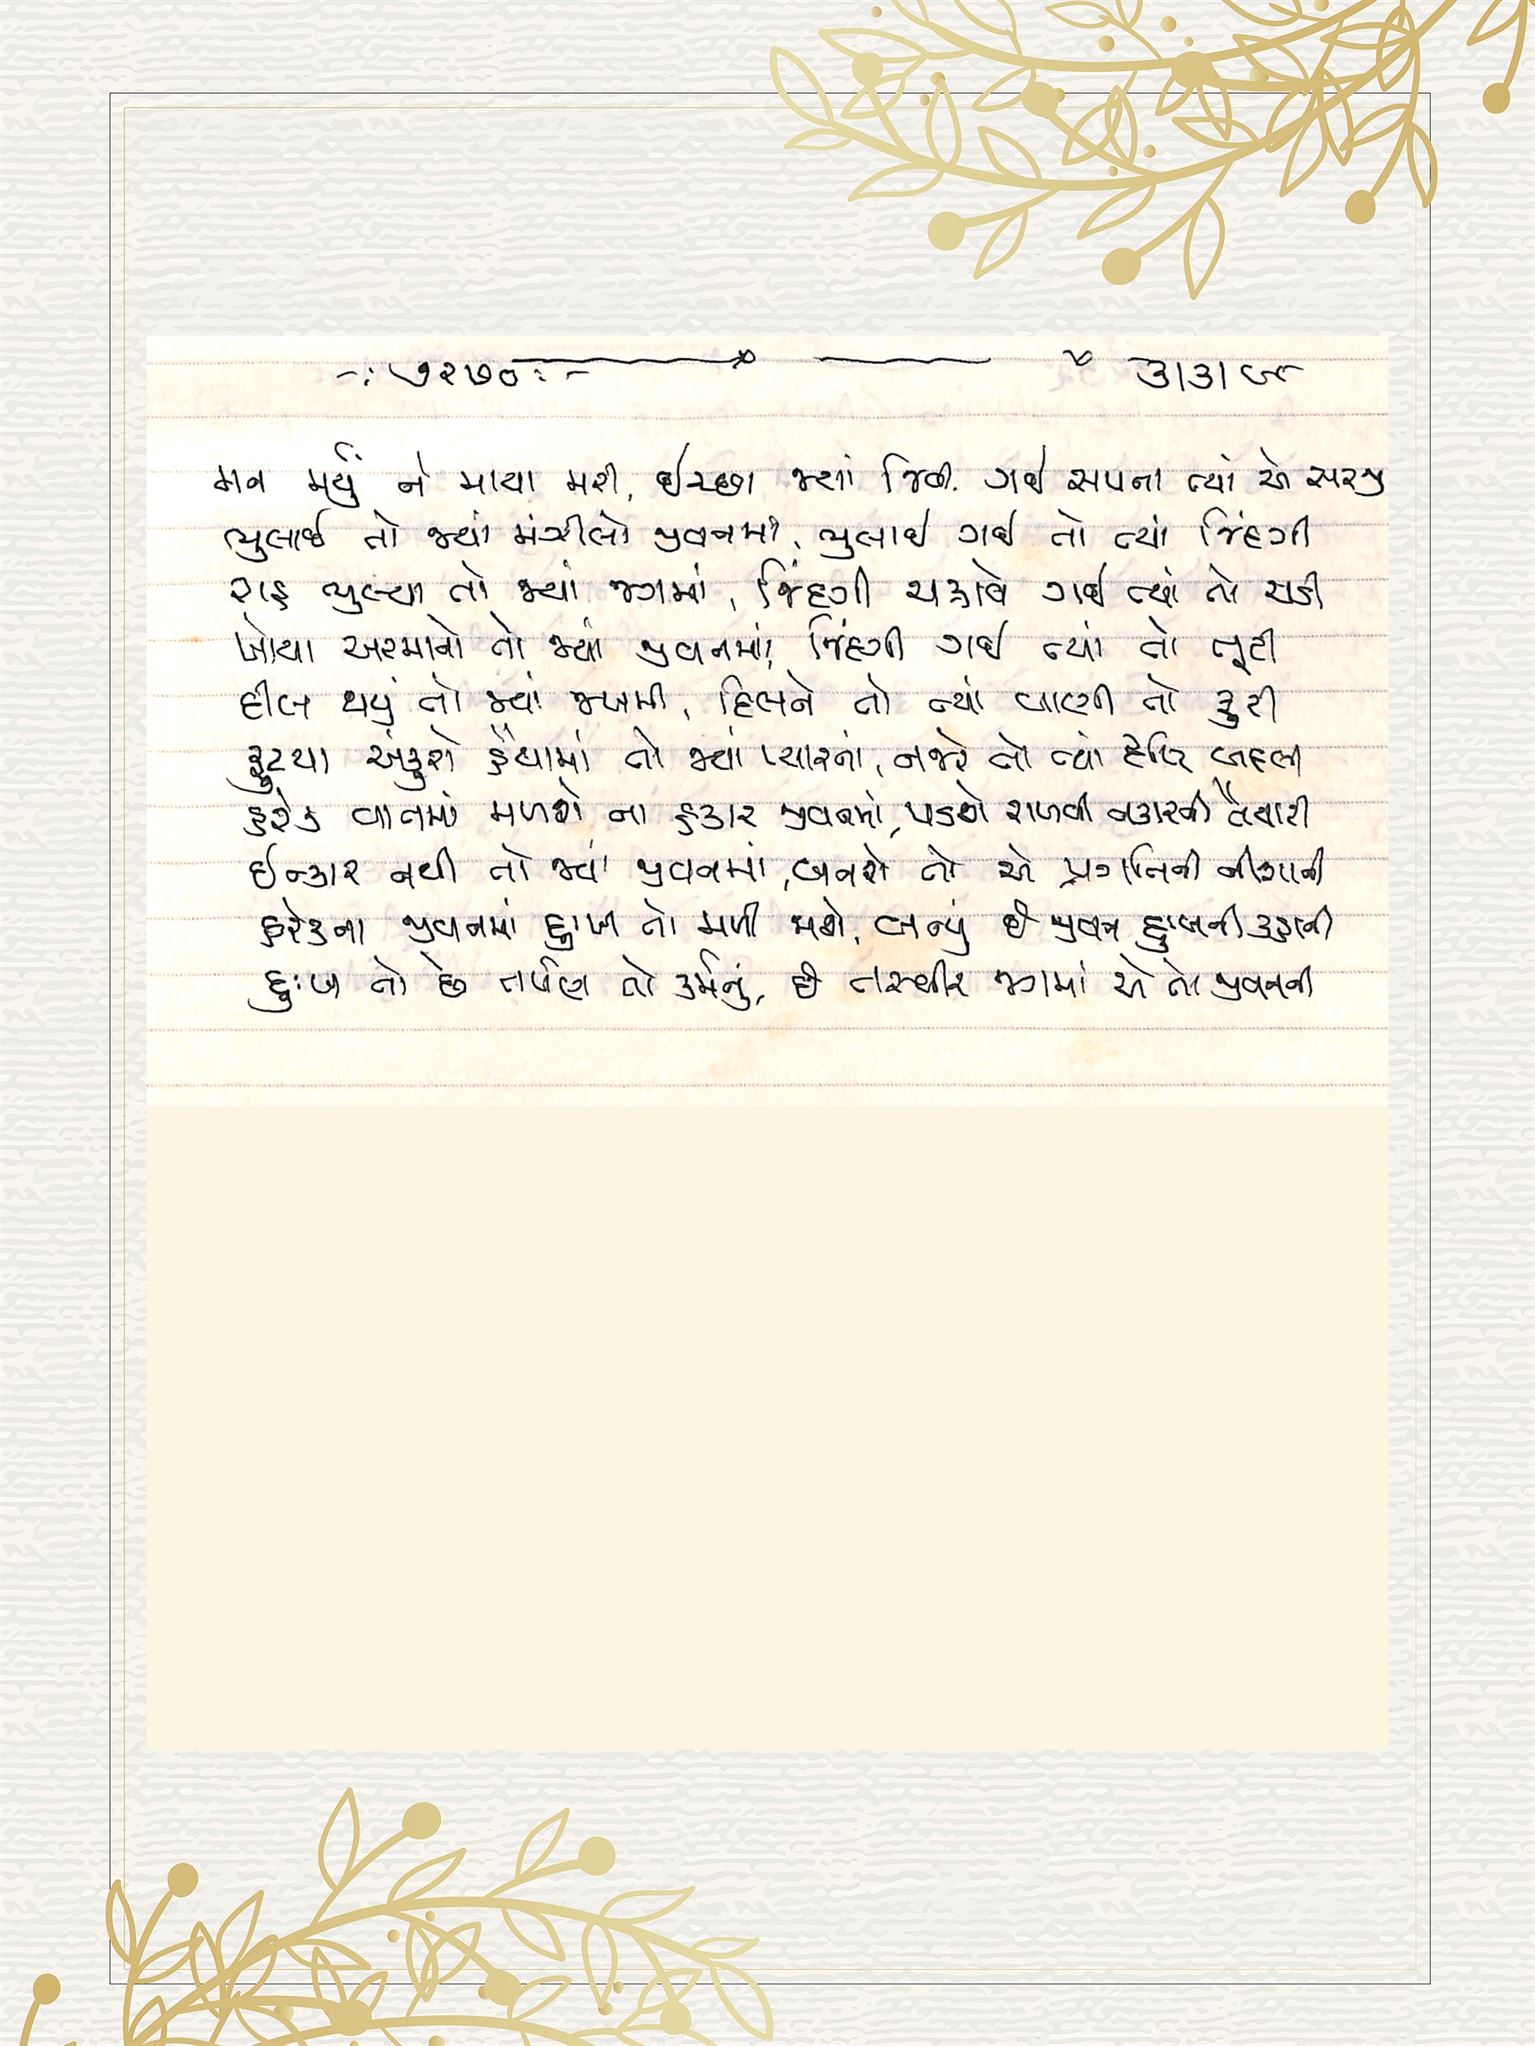 -: ૭૨૭૦ :-
મન મર્યું ને માયા મરી, ઈચ્છા જ્યાં જિવી ગઈ સપના ત્યાં એ સરજી
ભુલાઈ તો જ્યાં મંઝીલો જીવનમાં, ભુલાઈ ગઈ તો ત્યાં જિંદગી
રાહ ભુલ્યા તો જ્યાં જગમાં, જિંદગી ચકરાવે ગઈ ત્યાં તો ચડી
ખોયા અરમાનો તો જ્યાં જીવનમાં, જિંદગી ગઈ ત્યાં તો લૂટી
દીલ થયું તો જ્યાં જખમી, દિલને તો ત્યાં વાણી તો કુરી
ફુટયા અંકુરો હૈયામાં તો જ્યાં પ્યારનાં, નજરે તો ત્યાં બદલી
હરેક વાતમાં મળશે ના હકાર જીવનમાં, પડશે રાખવી નકારની તૈયારી
ઈન્કાર નથી તો જ્યાં જીવનમાં, બનશે તો એ પ્રગતિની નીશાની
હરેકના જીવનમાં દુઃખ તો મળી જાશે, બન્યું છે જીવન દુઃખની કહાની
દુઃખ તો છે તર્પણ તો કર્મનું, છે તસ્વીર જગમાં એ તો જીવનની